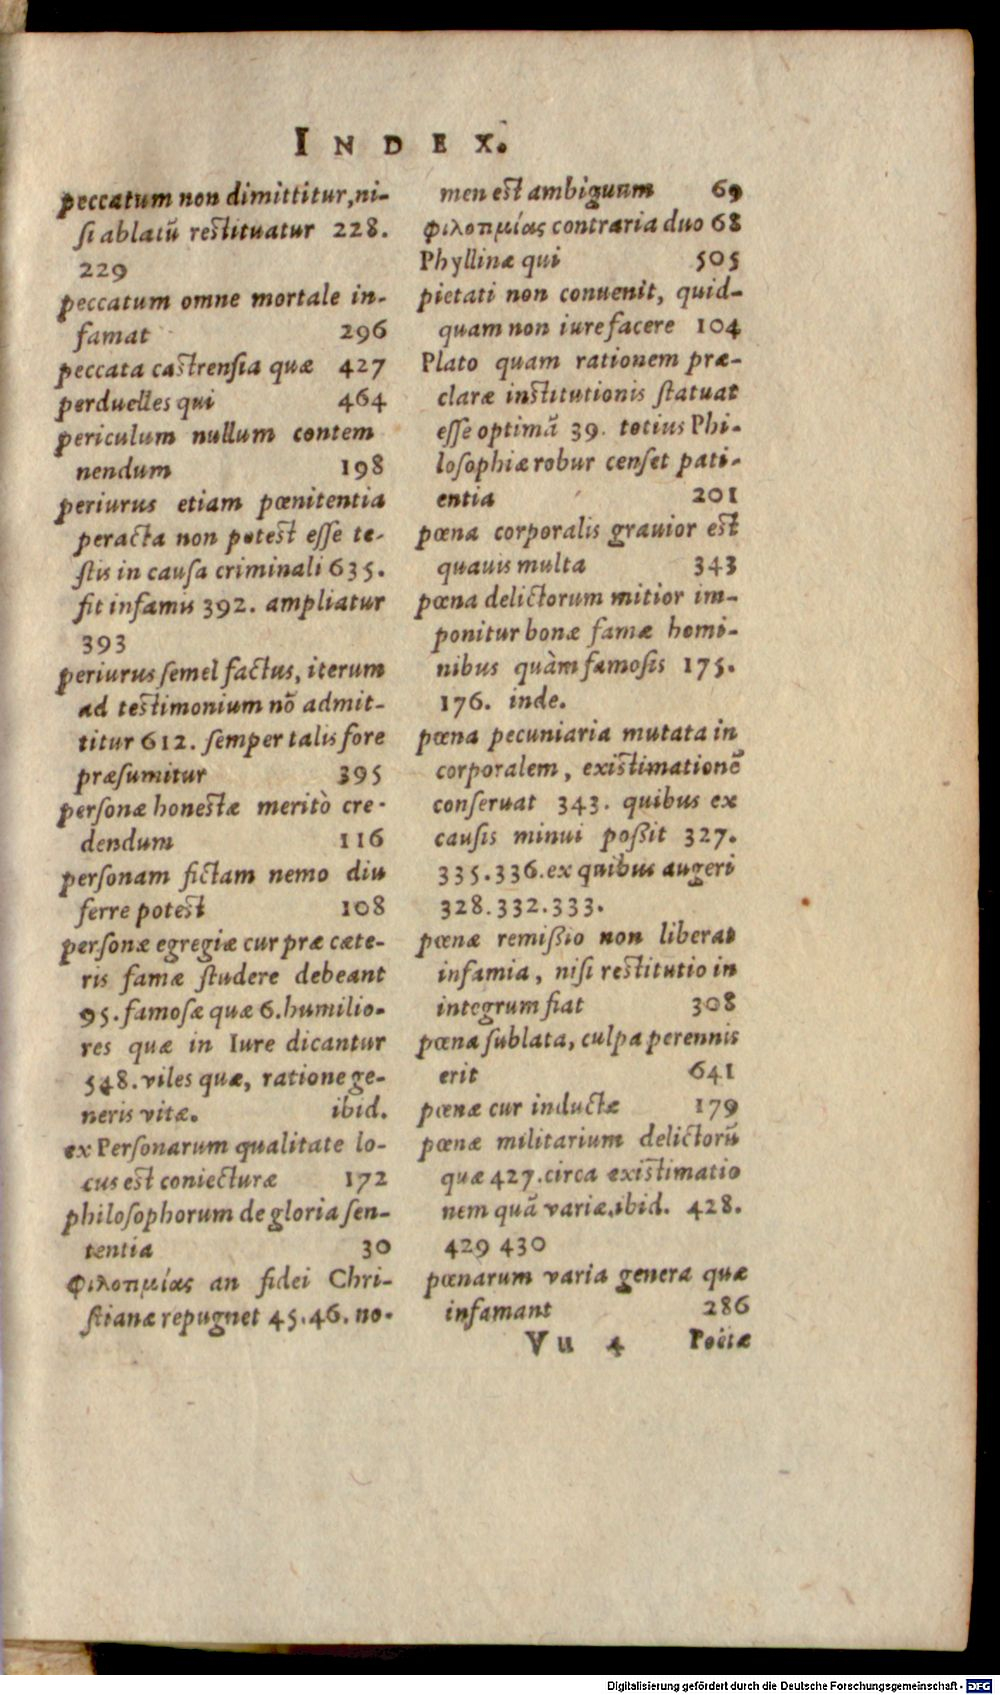 INDEX.
peccatum non dimittitur, ni-
ſi ablatū reſtituatur 228.
229
peccatum omne mortale in-
famat 296
peccata caſtrenſia quæ 427
perduelles qui 464
periculum nullum contem
nendum 198
periurus etiam pœnitentia
peracta non poteſt eſſe te-
ſtis in cauſa criminali 635.
fit infamis 392. ampliatur
393
periurus ſemel factus, iterum
ad teſtimonium nō admit-
titur 612. ſemper talis fore
præſumitur 395
perſonæ honeſtæ meritò cre-
dendum 116
perſonam fictam nemo diu
ferre poteſt 108
perſonæ egregiæ cur præ cæte-
ris famæ ſtudere debeant
95. famoſæ quæ 6. humilio-
res quæ in Iure dicantur
548. viles quæ, ratione ge-
neris vitæ. ibid.
ex Perſonarum qualitate lo-
cus eſt coniecturæ 172
philoſophorum de gloria ſen-
tentia 30
Φιλοτιμίας an fidei Chri-
ſtianæ repugnet 45. 46. no-
men eſt ambiguum 69
φιλοτιμίας contraria duo 68
Phyllinæ qui 505
pietati non conuenit, quid-
quam non iure facere 104
Plato quam rationem præ-
claræ inſtitutionis ſtatuat
eſſe optimā 39. totius Phi-
loſophiæ robur cenſet pati-
entia 201
pœna corporalis grauior eſt
quauis multa 343
pœna delictorum mitior im-
ponitur bonæ famæ homi-
nibus quàm famoſis 175.
176. inde.
pœna pecuniaria mutata in
corporalem, exiſtimationē
conſeruat 343. quibus ex
cauſis minui poßit 327.
335. 336. ex quibus augeri
328. 332. 333.
pœnæ remißio non liberat
infamia, niſi reſtitutio in
integrum fiat 308
pœna ſublata, culpa perennis
erit 641
pœnæ cur inductæ 179
pœnæ militarium delictorū
quæ 427. circa exiſtimatio
nem quā variæ. ibid. 428.
429 430
pœnarum varia genera quæ
infamant 286
Vu 4 Poëtæ
Digitalisierung gefördert durch die Deutsche Forschungsgemeinschaft - DFG